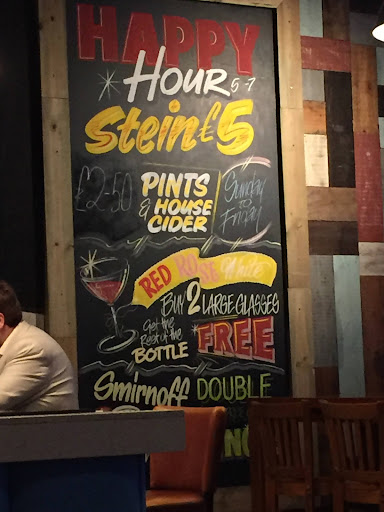 HAPPY
Hour 5-7
Stein £5
£2-50 PINTS & HOUSE CIDER
Sunday to Friday
RED ROSE White
BUY 2 LARGE GLASSES
Get the Rest of the BOTTLE
FREE
Smirnoff DOUBLE